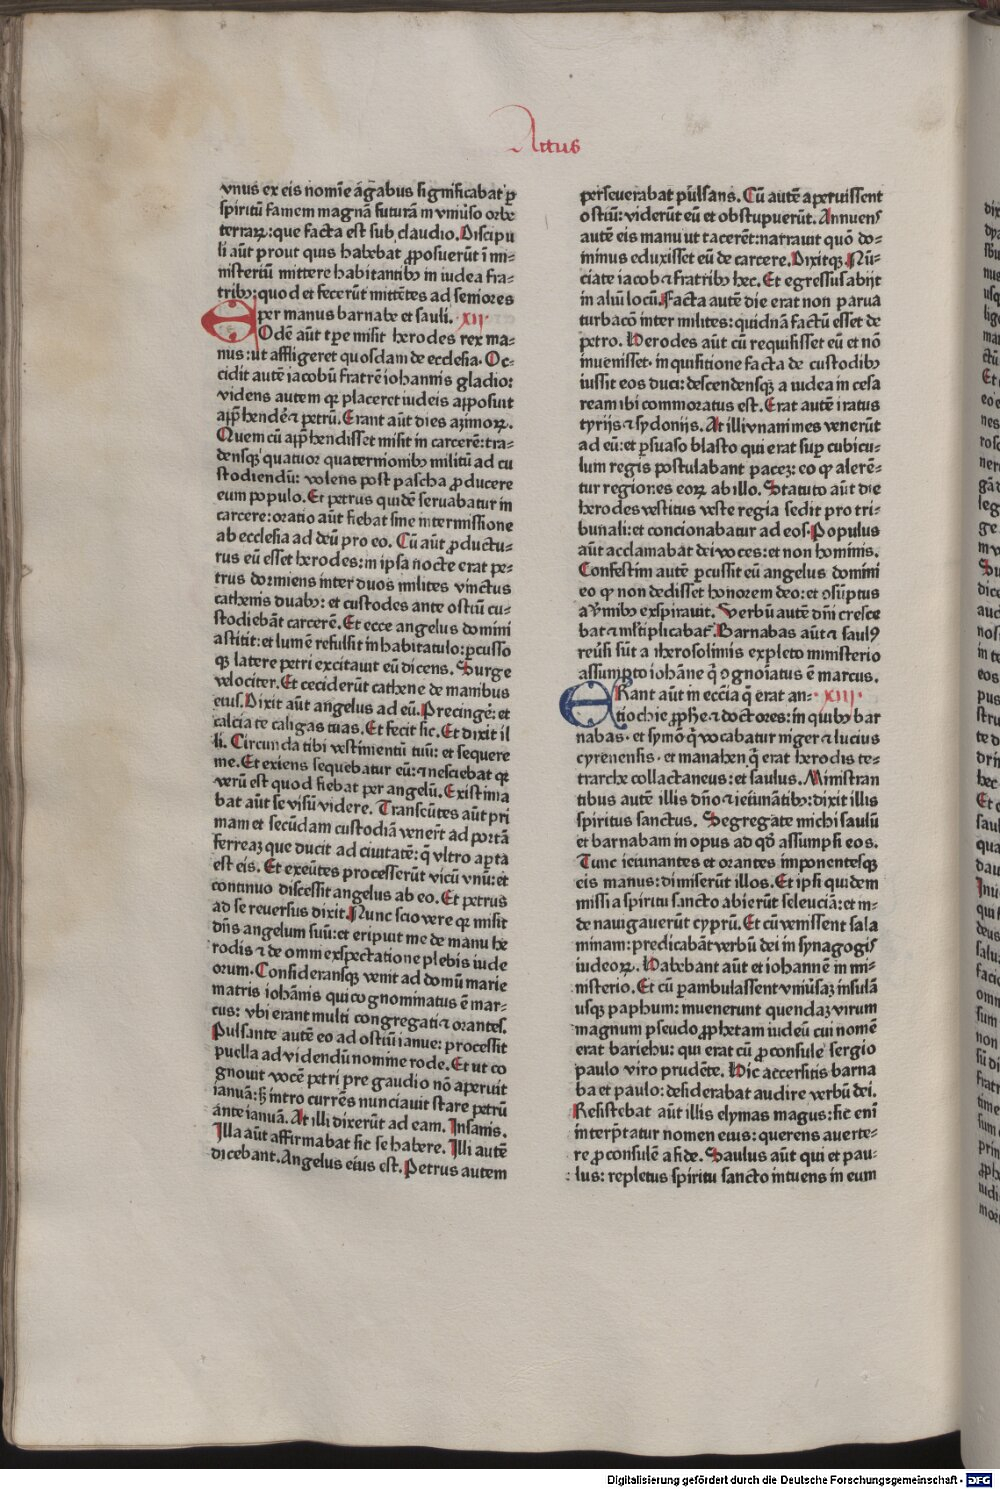 Actus
vnus ex eis nomīe agabus significabat ꝑ
spiritū famem magnā futurā in vniūso orbe
terraꝝ: que facta est sub claudio. Discipu
li aūt prout quis habebat ꝓposuerūt ī mi⸗
nisteriū mittere habitantibꝫ in iudea fra⸗
tribꝫ: quod et fecerūt mittētes ad seniores
per manus barnabe et sauli. XII.
EOdē aūt tꝑe misit herodes rex ma⸗
nus: ut affligeret quosdam de ecclesia. Oc⸗
cidit autē iacobū fratrē iohannis gladio:
videns autem qꝫ placeret iudeis apposuit
app̄hendēꝛe ⁊ petrū. Erant aūt dies azimoꝝ.
Quem cū app̄hendisset misit in carcerē: tra⸗
densqꝫ quatuor quaternionibꝫ militū ad cu
stodiendū: volens post pascha ꝓducere
eum populo. Et petrus quidē seruabatur in
carcere: oratio aūt fiebat sine intermissione
ab ecclesia ad deū pro eo. Cū aūt ꝓductu⸗
rus eū esset herodes: in ipsa nocte erat pe⸗
trus dormiens inter duos milites vinctus
cathenis duabꝫ: et custodes ante ostiū cu⸗
stodiebāt carcerē. Et ecce angelus domini
astitit: et lumē refulsit in habitatulo: ꝑcusso
qꝫ latere petri excitauit eū dicens. Surge
velociter. Et ceciderūt cathene de manibus
eius. Dixit aūt angelus ad eū. Precingē: et
calcia te caligas tuas. Et fecit sic. Et dixit il
li. Circunda tibi vestimentū tuū: et sequere
me. Et exiens sequebatur eū: ⁊ nesciebat qꝫ
verū est quod fiebat per angelū. Existima
bat aūt se visū videre. Transeūtes aūt pri
mam et secūdam custodiā venerūt ad portā
ferreaꝫ que ducit ad ciuitatē: q̄ vltro apta
est eis. Et exeūtes processerūt vicū vnū: et
continuo discessit angelus ab eo. Et petrus
ad se reuersus dixit. Nunc scio vere qꝫ misit
dn̄s angelum suū: et eripuit me de manu he
rodis ⁊ de omni exspectatione plebis iude
orum. Consideransqꝫ venit ad domū marie
matris iohānis qui cognominatus ē mar⸗
cus: vbi erant multi congregati ⁊ orantes.
Pulsante autē eo ad ostiū ianue: processit
puella ad videndū nomine rode. Et ut co
gnouit vocē petri pre gaudio nō aperuit
ianuā: sꝫ intro currēs nunciauit stare petrū
ante ianuā. At illi dixerūt ad eam. Insanis.
Illa aūt affirmabat sic se habere. Illi autē
dicebant. Angelus eius est. Petrus autem
perseuerabat pulsans. Cū autē aperuissent
ostiū: viderūt eū et obstupuerūt. Annuens
autē eis manu ut tacerēt: narrauit quō do⸗
minus eduxisset eū de carcere. Dixitqꝫ. Nū⸗
ciate iacobo ⁊ fratribꝫ hec. Et egressus abijt
in aliū locū. Facta autē die erat non parua
turbacō inter milites: quidnā factū esset de
petro. Herodes aūt cū requisisset eū et nō
inuenisset. inquisitione facta de custodibꝫ
iussit eos duci: descendensqꝫ a iudea in cesa
ream ibi commoratus est. Erat autē iratus
tyrijs ⁊ sydonijs. At illi vnanimes venerūt
ad eū: et ꝑsuaso blasto qui erat suꝑ cubicu⸗
lum regis postulabant pacem: eo qꝫ alerē⸗
tur regiones eoꝝ ab illo. Statuto aūt die
herodes vestitus veste regia sedit pro tri⸗
bunali: et concionabatur ad eos. Populus
aūt acclamabat dei voces: et non hominis.
Confestim autē ꝑcussit eū angelus domini
eo qꝫ non dedisset honorem deo: et ꝯsūptus
a v̄mibꝫ exspirauit. Verbū autē dn̄i cresce
bat ⁊ mltiplicabat͛. Barnabas aūt ⁊ saulꝰ
reūsi sūt a iherosolimis expleto ministerio
assumpto iohāne q̄ ꝯgnoīatus ē marcus.
ERant aūt in eccīa q̄ erat an⸗ XIII.
tiochie ꝓphe. ⁊ doctores: in quibꝫ bar
nabas. et symō q̄ vocabatur niger ⁊ lucius
cyrenensis. et manahen q̄ erat herodis te⸗
trarche collactaneus: et saulus. Ministran
tibus autē illis dn̄o ⁊ ieiunātibꝫ: dixit illis
spiritus sanctus. Segregate michi saulū
et barnabam in opus ad qd̄ assumpsi eos.
Tunc ieiunantes et orantes imponentesqꝫ
eis manus: dimiserūt illos. Et ipsi quidem
missi a spiritu sancto abierūt seleuciā: et in⸗
de nauigauerūt cyprū. Et cū venissent sala
minam: predicabāt verbū dei in synagogis
iudeoꝝ. Habebant aūt et iohannē in mi⸗
nisterio. Et cū ꝑambulassent vniūsaꝫ insulā
usqꝫ paphum: inuenerunt quendaꝫ virum
magnum pseudo ꝓphetam iudeū cui nomē
erat bariehu: qui erat cū ꝓconsule sergio
paulo viro prudēte. Hic accersitis barna
ba et paulo: desiderabat audire verbū dei.
Resistebat aūt illis elymas magus: sic enī
interp̄tatur nomen eius: querens auerte⸗
re ꝓconsulē a fide. Saulus aūt qui et pau⸗
lus: repletus spiritu sancto intuens in eum
Digitalisierung gefördert durch die Deutsche Forschungsgemeinschaft - DFG